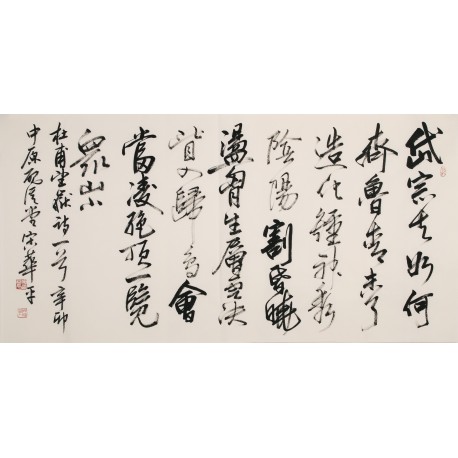 岱宗夫如何
齊魯青未了
造化鍾神秀
陰陽割昏曉
盪胸生層雲決
眥入歸鳥會
當凌絕頂一覽
眾山小
杜甫望嶽詩一首 辛卯
中原 堂宋華平